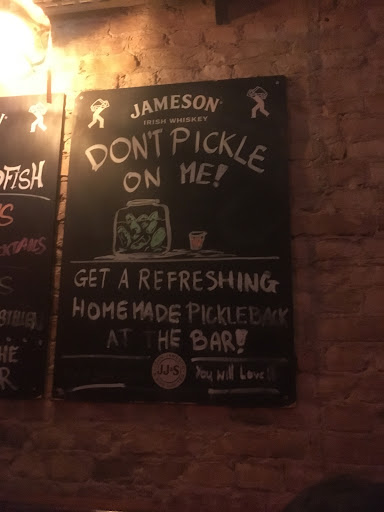 DFISH
JAMESON
IRISH WHISKEY
DON'T PICKLE
ON ME!
GET A REFRESHING
HOMEMADE PICKLEBACK
AT THE BAR!
JJ&S
You Will Love It